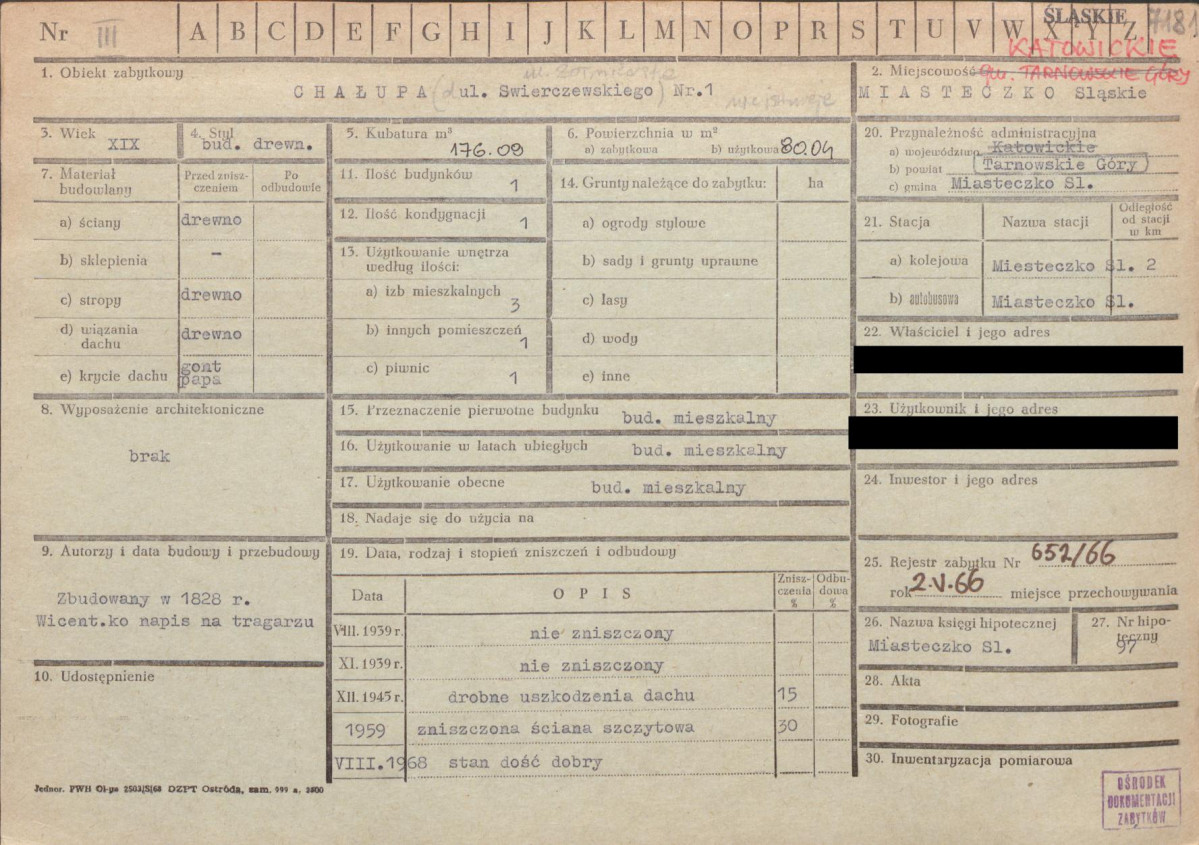 Nr III A B C D E F G H I J K L M N O P R S T U V W X Y Z
ŚLĄSKIE 7181
KATOWICKIE
1. Obiekt zabytkowy
CHAŁUPA (d ul. Swierczewskiego) Nr.1
nie istnieje
2. Miejscowość gw. TARNOWSKIE GÓRY
MIASTECZKO Sląskie
3. Wiek
XIX
4. Styl
bud. drewn.
5. Kubatura m³
176.09
6. Powierzchnia w m²
a) zabytkowa b) użytkowa 80.04
7. Materiał budowlany
Przed zniszczeniem
Po odbudowie
a) ściany drewno
b) sklepienia –
c) stropy drewno
d) wiązania dachu drewno
e) krycie dachu gont papa
8. Wyposażenie architektoniczne
brak
9. Autorzy i data budowy i przebudowy
Zbudowany w 1828 r.
Wicent.ko napis na tragarzu
10. Udostępnienie
11. Ilość budynków 1
12. Ilość kondygnacji 1
13. Użytkowanie wnętrza według ilości:
a) izb mieszkalnych 3
b) innych pomieszczeń 1
c) piwnic 1
14. Grunty należące do zabytku: ha
a) ogrody stylowe
b) sady i grunty uprawne
c) lasy
d) wody
e) inne
15. Przeznaczenie pierwotne budynku bud. mieszkalny
16. Użytkowanie w latach ubiegłych bud. mieszkalny
17. Użytkowanie obecne bud. mieszkalny
18. Nadaje się do użycia na
19. Data, rodzaj i stopień zniszczeń i odbudowy
Data OPIS Zniszczenia % Odbudowa %
VIII. 1939 r. nie zniszczony
XI. 1939 r. nie zniszczony
XII. 1945 r. drobne uszkodzenia dachu 15
1959 zniszczona ściana szczytowa 30
VIII.1968 stan dość dobry
20. Przynależność administracyjna
a) województwo Katowickie
b) powiat Tarnowskie Góry
c) gmina Miasteczko Sl.
21. Stacja Nazwa stacji Odległość od stacji w km
a) kolejowa Miesteczko Sl. 2
b) autobusowa Miasteczko Sl.
22. Właściciel i jego adres
23. Użytkownik i jego adres
24. Inwestor i jego adres
25. Rejestr zabytku Nr 652/66
rok 2.V.66 miejsce przechowywania
26. Nazwa księgi hipotecznej
Miasteczko Sl.
27. Nr hipoteczny
97
28. Akta
29. Fotografie
30. Inwentaryzacja pomiarowa
OŚRODEK
DOKUMENTACJI
ZABYTKÓW